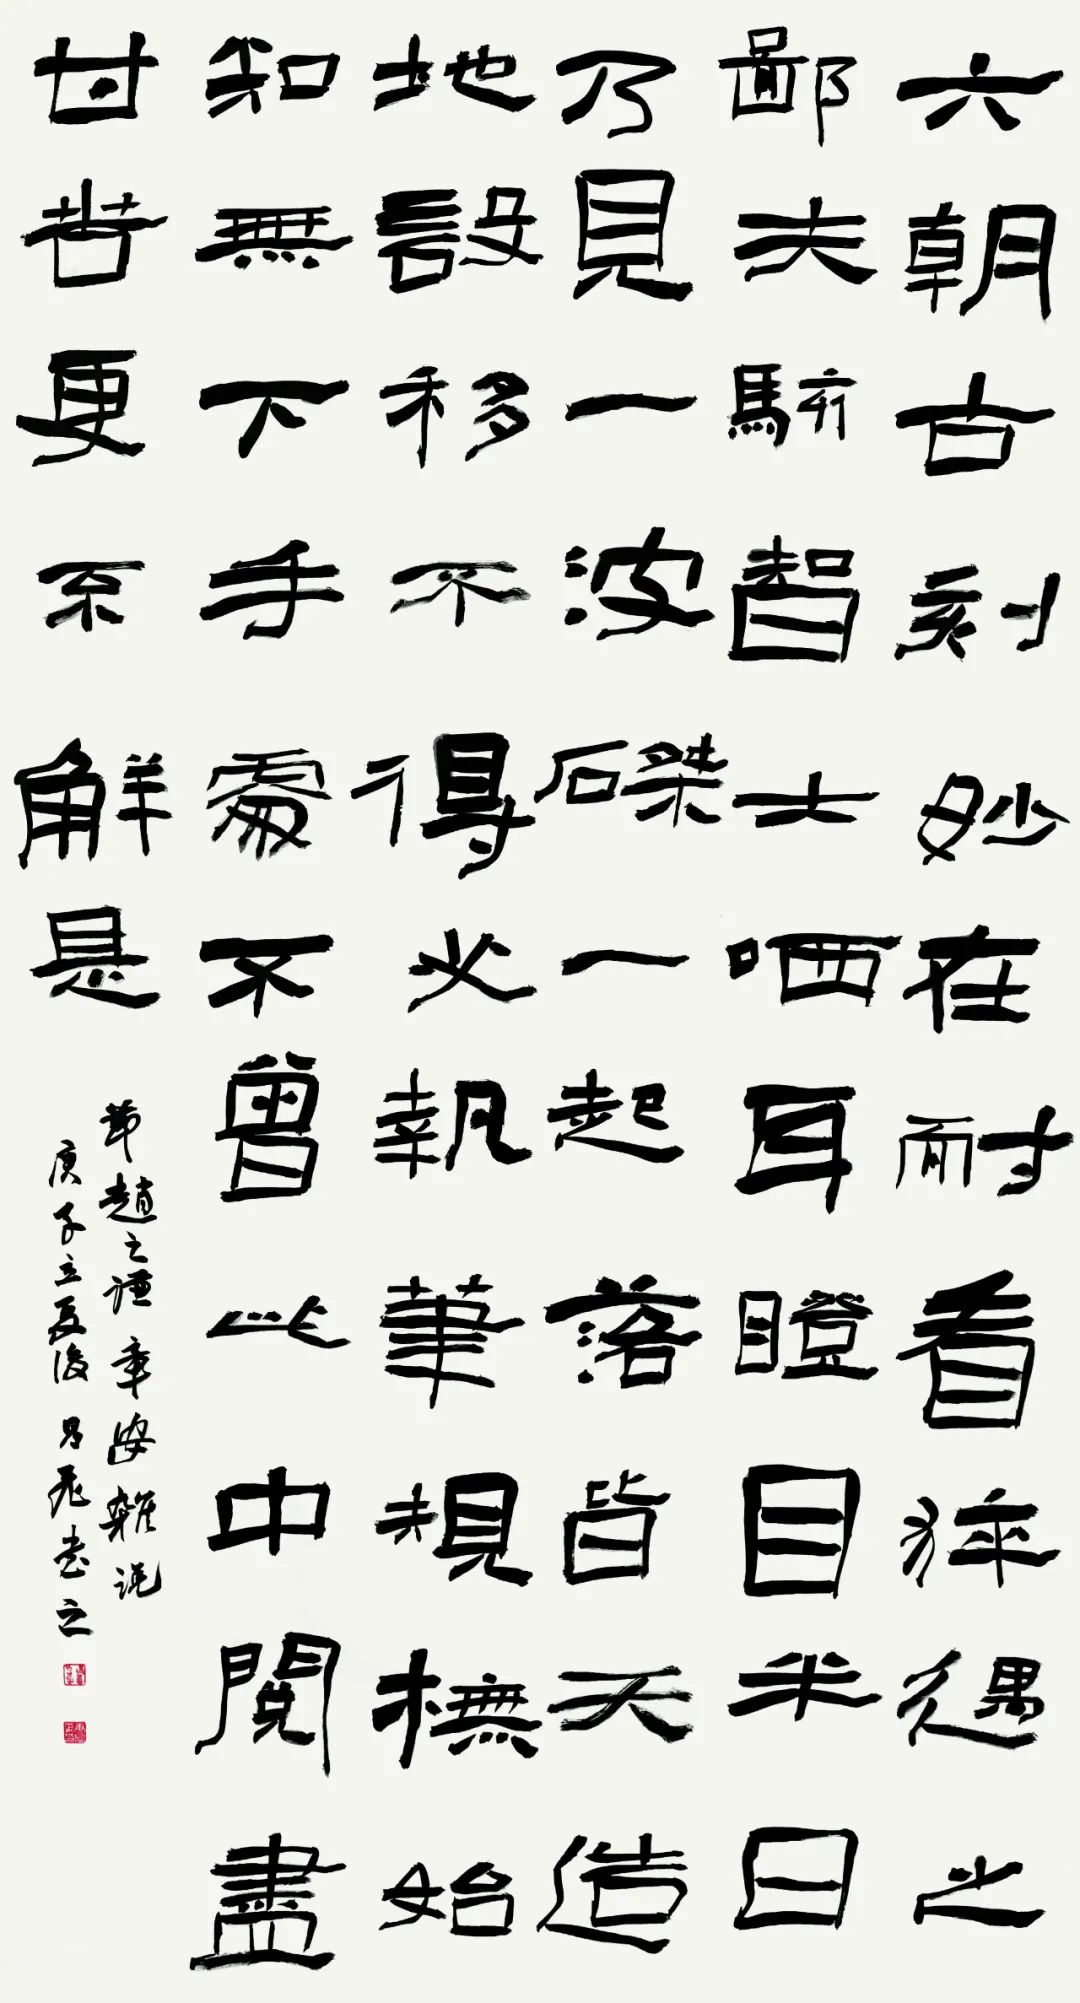 六朝古刻妙在耐看猝遇之
鄙夫駭智士哂耳瞪目半日
乃見一波磔一起落皆天造
地設移不得必執筆規橅始
知無下手處不曾此中閱盡
甘苦更不解是
節趙之謙章安雜說
庚子立夏後 書之